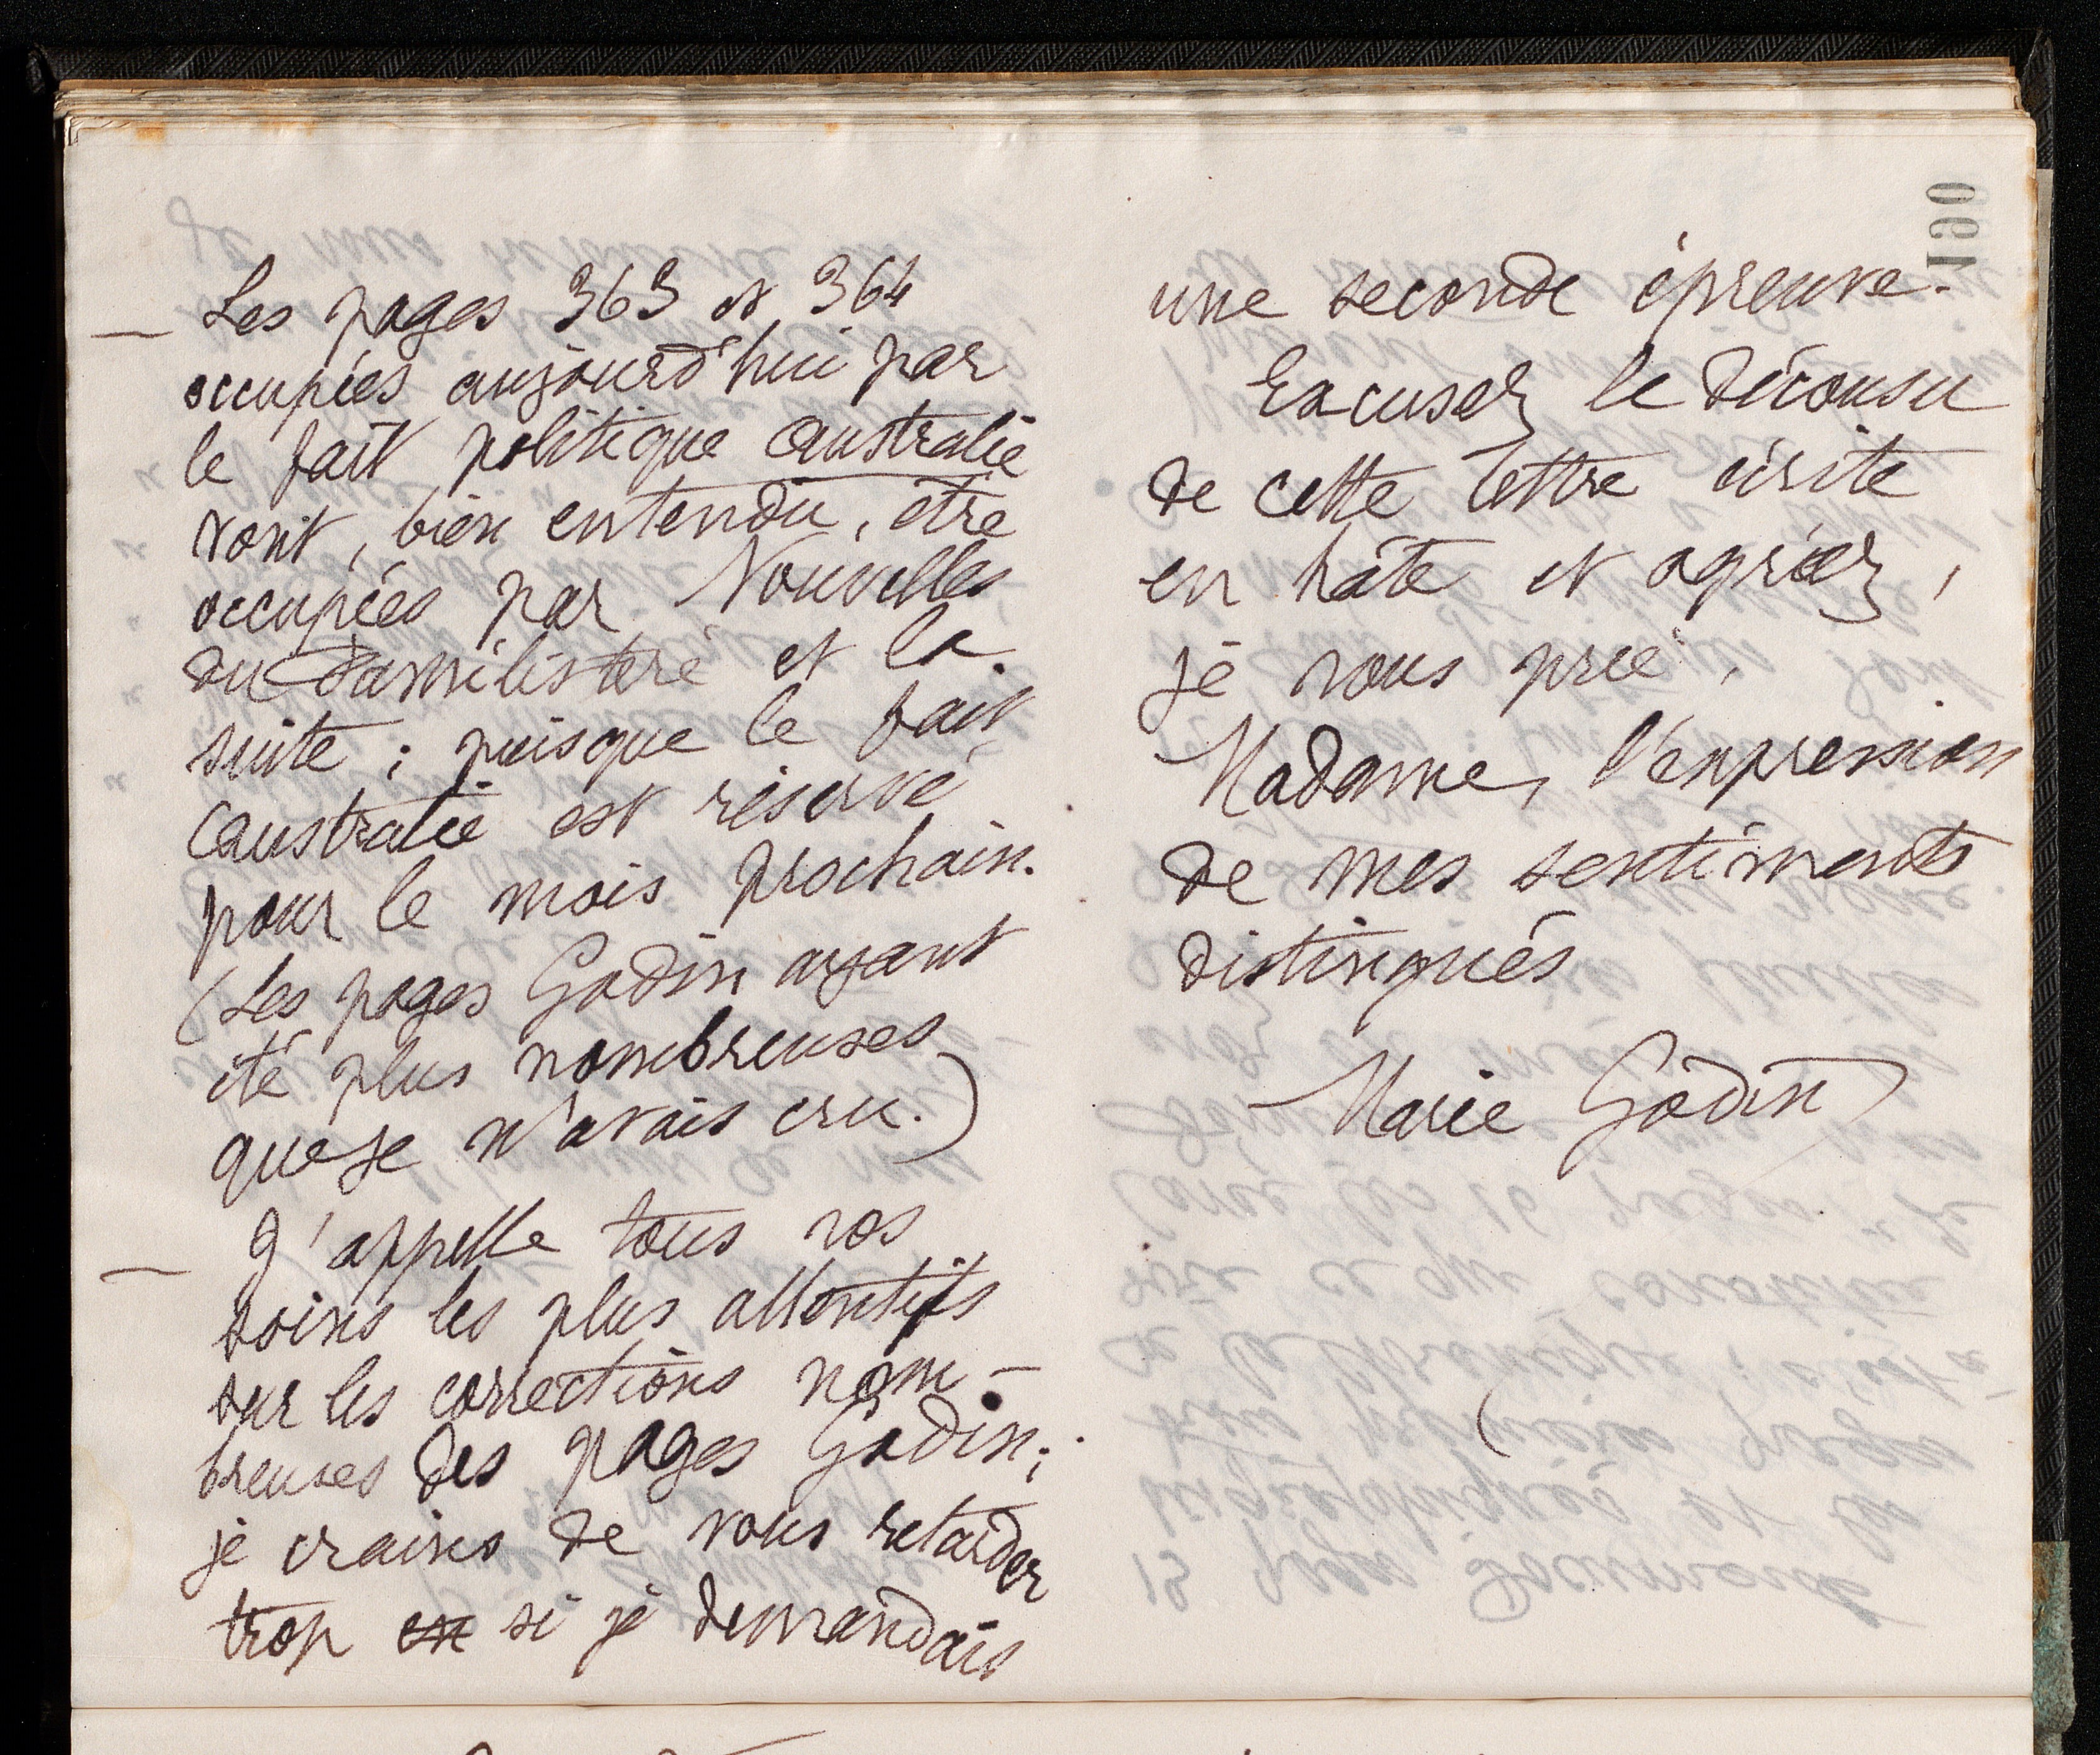 — Les pages 363 et 364
occupées aujourd'hui par
le fait politique Australie
vont, bien entendu, être
occupées par Nouvelles
du Familistère et la
suite ; puisque le fait
Australie est réservé
pour le mois prochain.
(Les pages Godin ayant
été plus nombreuses
que je n'avais cru.)
— J'appelle tous vos
soins les plus attentifs
sur les corrections nom-
breuses des pages Godin ;
je crains de vous retarder
trop en si je demandais
une seconde épreuve.
Excusez le décousu
de cette lettre écrite
en hâte et agréez,
je vous prie,
Madame, l'expression
de mes sentiments
distingués
Marie Godin